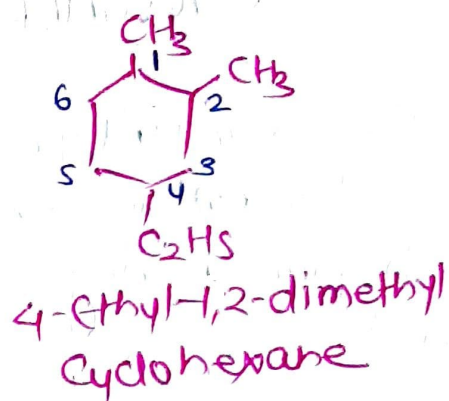 CH3
1
CH3
6
2
5
3
4
C2H5
4-Ethyl-1,2-dimethyl
Cyclohexane